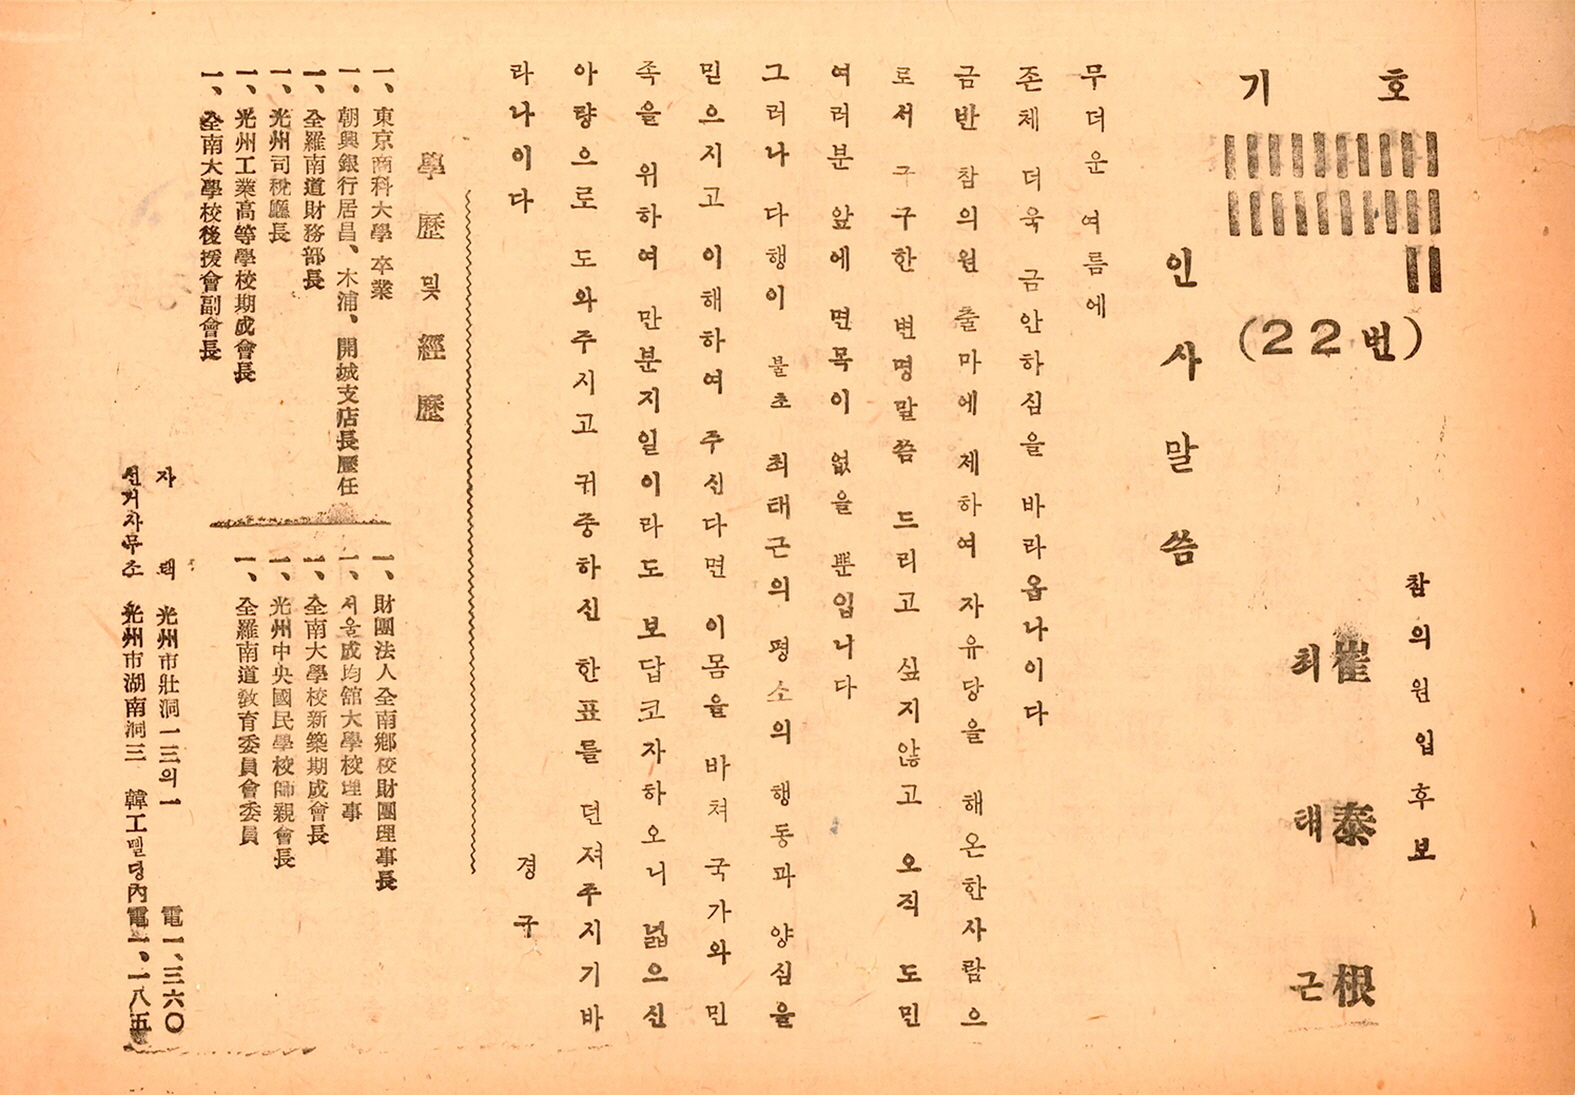 기호
(22번)
참의원입후보
崔泰根
최태근
인사말씀
무더운 여름에
존체 더욱 금안하심을 바라옵나이다
금반 참의원 출마에 제하여 자유당을 해온한사람으
로서 구구한 변명말씀 드리고 싶지않고 오직 도민
여러분 앞에 면목이 없을 뿐입니다
그러나 다행이 불초 최태근의 평소의 행동과 양심을
믿으지고 이해하여 주신다면 이몸을 바쳐 국가와 민
족을 위하여 만분지일이라도 보답코자하오니 넓으신
아량으로 도와주시고 귀중하신 한표를 던져주지기바
라나이다
경구
學歷 및 經歷
一、東京商科大學 卒業
一、朝興銀行居昌、木浦、開城支店長歷任
一、全羅南道財務部長
一、光州司稅廳長
一、光州工業高等學校期成會長
一、全南大學校後援會副會長
一、財團法人全南鄕校財團理事長
一、서울成均館大學校理事
一、全南大學校新築期成會長
一、光州中央國民學校師親會長
一、全羅南道敎育委員會委員
자택 光州市壯洞一三의一 電一、三六〇
선거사무소 光州市湖南洞三 韓工삘딩內 電一、一八五